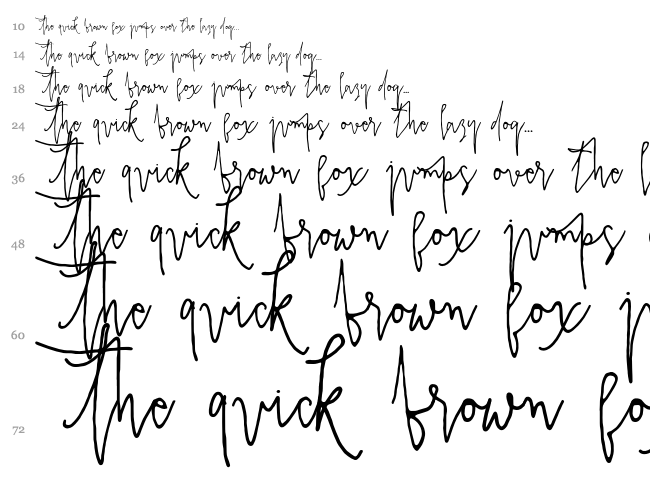 10 the quick brown fox jumps over the lazy dog...
14 the quick brown fox jumps over the lazy dog...
18 the quick brown fox jumps over the lazy dog...
24 the quick brown fox jumps over the lazy dog...
36 the quick brown fox jumps over the l
48 the quick brown fox jumps
60 the quick brown fox j
72 the quick brown fo